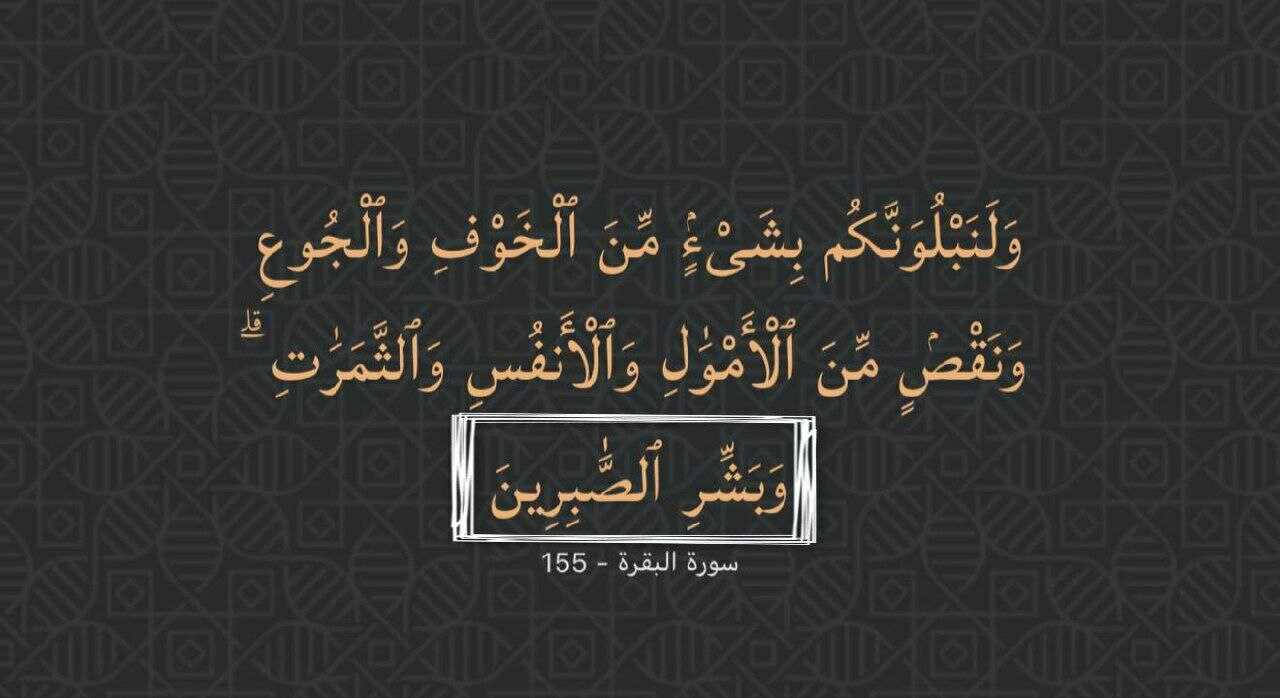 وَلَنَبْلُوَنَّكُم بِشَىْءٍۢ مِّنَ ٱلْخَوْفِ وَٱلْجُوعِ
وَنَقْصٍۢ مِّنَ ٱلْأَمْوَٰلِ وَٱلْأَنفُسِ وَٱلثَّمَرَٰتِ ۗ
وَبَشِّرِ ٱلصَّٰبِرِينَ
سورة البقرة - 155